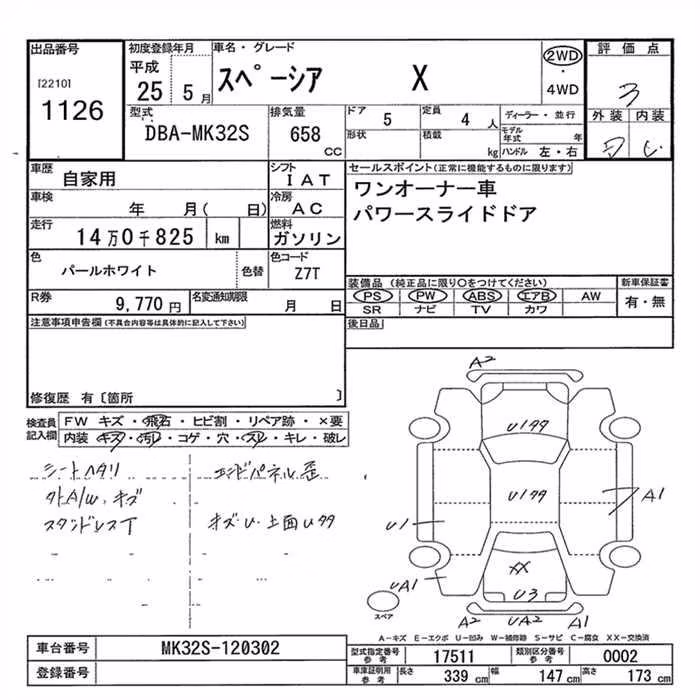 出品番号
[2210]
1126
初度登録年月
平成
25 5月
車名・グレード
スペーシア X
2WD
・
4WD
評価点
3
外装 内装
型式
DBA-MK32S
排気量
658 CC
ドア 5
定員 4 人
形状
積載 kg
ディーラー・並行
モデル年式 年
ハンドル 左・右
車歴 自家用
シフト IAT
車検 年 月( 日)
冷房 AC
走行 14万0千825 km
燃料 ガソリン
色 パールホワイト 色替
色コード Z7T
R券 9,770円
名変通知期限 月 日
セールスポイント(正常に機能するものに限ります)
ワンオーナー車
パワースライドドア
装備品(純正品に限り○をつけてください)
PS PW ABS エアB AW
SR ナビ TV カワ
新車保証書
有・無
後日品
注意事項申告欄(不具合内容等は具体的に記入して下さい)
修復歴 有〔箇所 〕
検査員記入欄
FW キズ・飛石・ヒビ割・リペア跡・×要
内装・キズ・汚レ・コゲ・穴・スレ・キレ・破レ
シートヘタリ
外A/W、キズ
スタンドレスT
エンドパネル歪
キズU・上面Uタタ
A2
Uタタ
Uタタ
A1
U1
XX
UA1
U3
A2 UA2 A1
スペア
A-キズ E-エクボ U-凹み W-補修跡 S-サビ C-腐食 XX-交換済
車台番号 MK32S-120302
登録番号
型式指定番号 参考 17511
類別区分番号 参考 0002
車庫証明用 参考 長さ 339 cm 幅 147 cm 高さ 173 cm